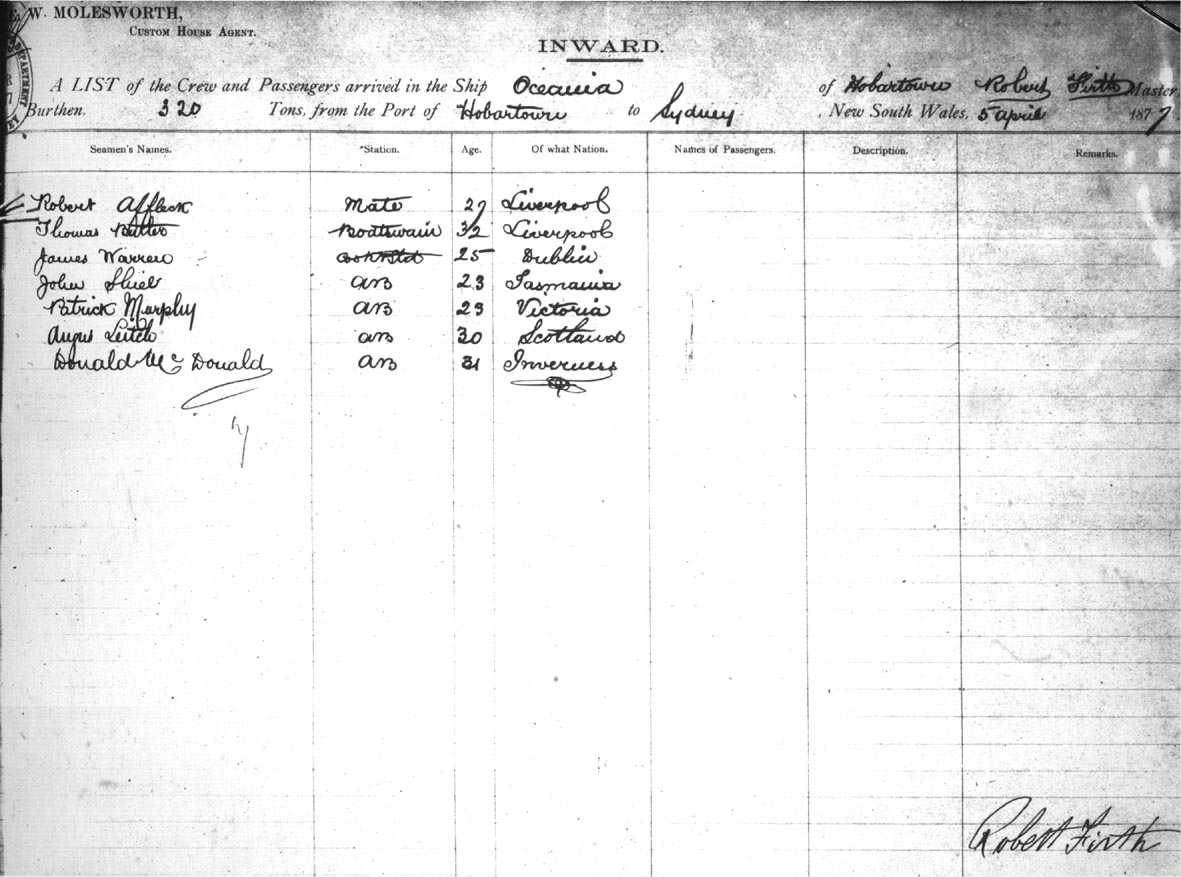 W. MOLESWORTH,
CUSTOM HOUSE AGENT.
INWARD.
A LIST of the Crew and Passengers arrived in the Ship Oceania of Hobartown Robert Firth Master
Burthen. 320 Tons, from the Port of Hobartown to Sydney, New South Wales, 5 april 1877
Seamen's Names. Station. Age. Of what Nation. Names of Passengers. Description. Remarks.
Robert Affleck Mate 27 Liverpool
Thomas Boatswain 32 Liverpool
James Warren 25 Dublin
John Shiel AB 23 Tasmania
Patrick Murphy AB 23 Victoria
Angus Leitch AB 30 Scotland
Donald McDonald AB 31 Inverness
Robert Firth